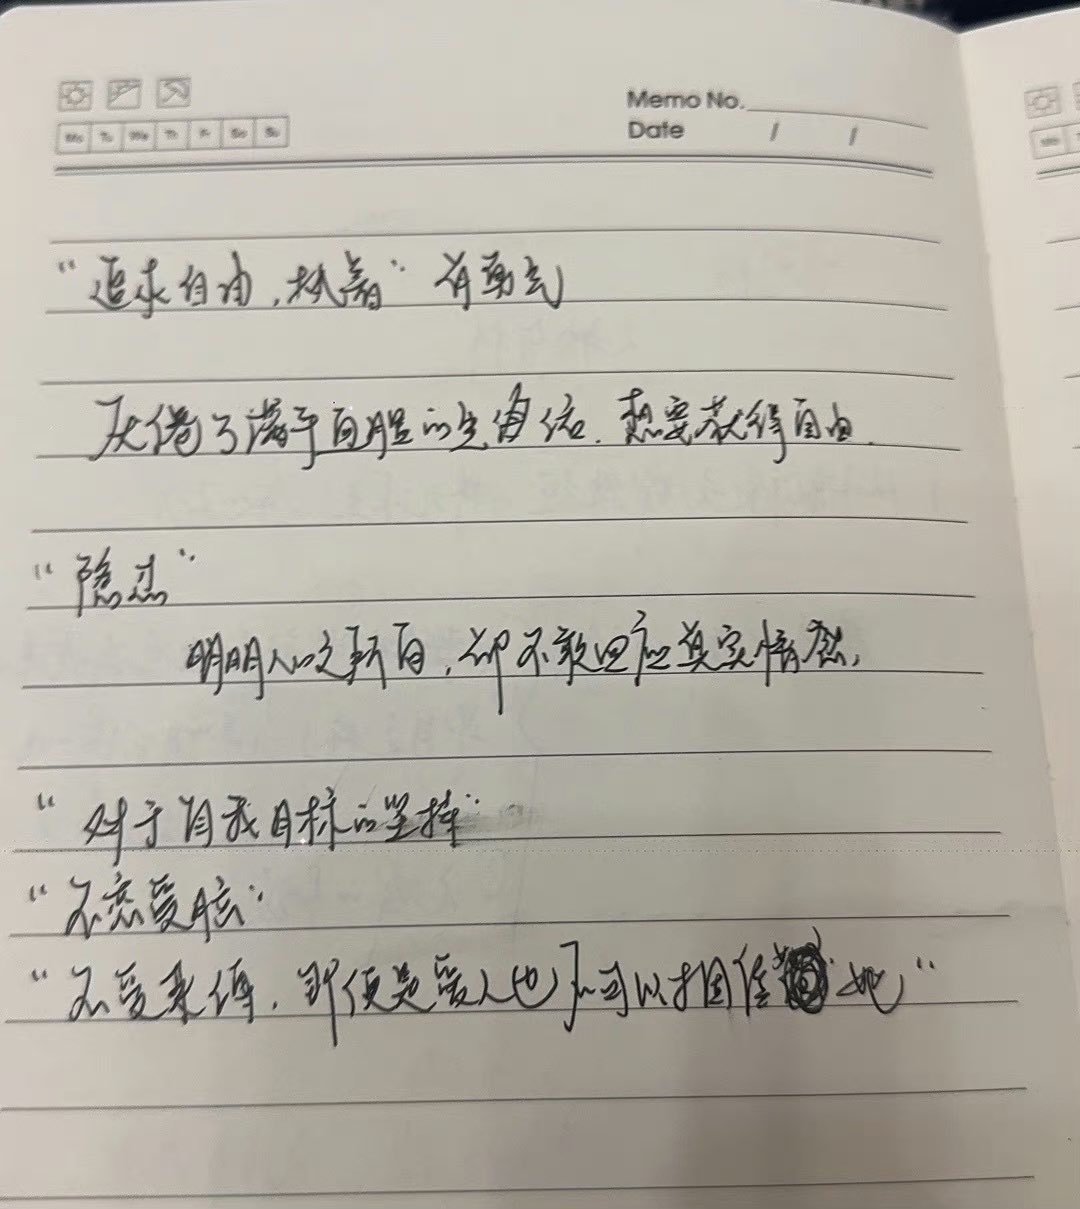 Memo No.
Date / /
Mo Tu We Th Fr Sa Su
"追求自由,执着" 有勇气
厌倦了满手血腥的生活,想要获得自由.
"隐忍"
明明心意明白,却不敢回应真实情感,
"对于自我目标的坚持"
"不恋爱脑"
"不受束缚,即便是爱人也不可以相信她"